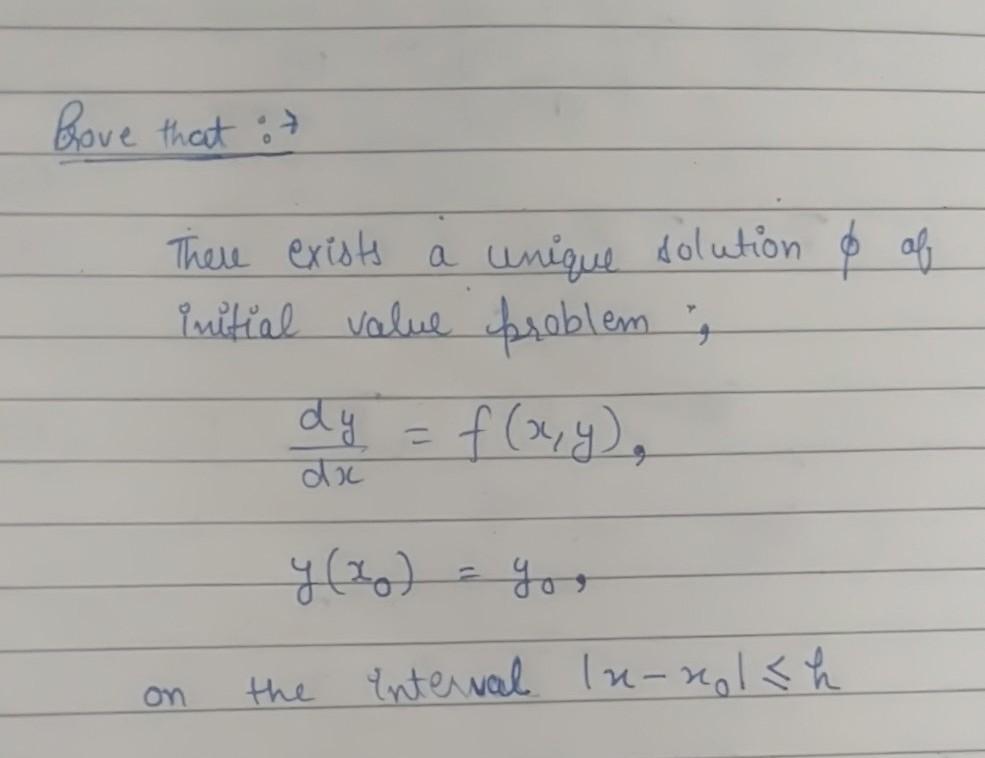 Prove that :→
There exists a unique solution ϕ of
initial value problem ;
dy/dx = f(x,y),
y(x₀) = y₀,
on the interval |x-x₀| ≤ h